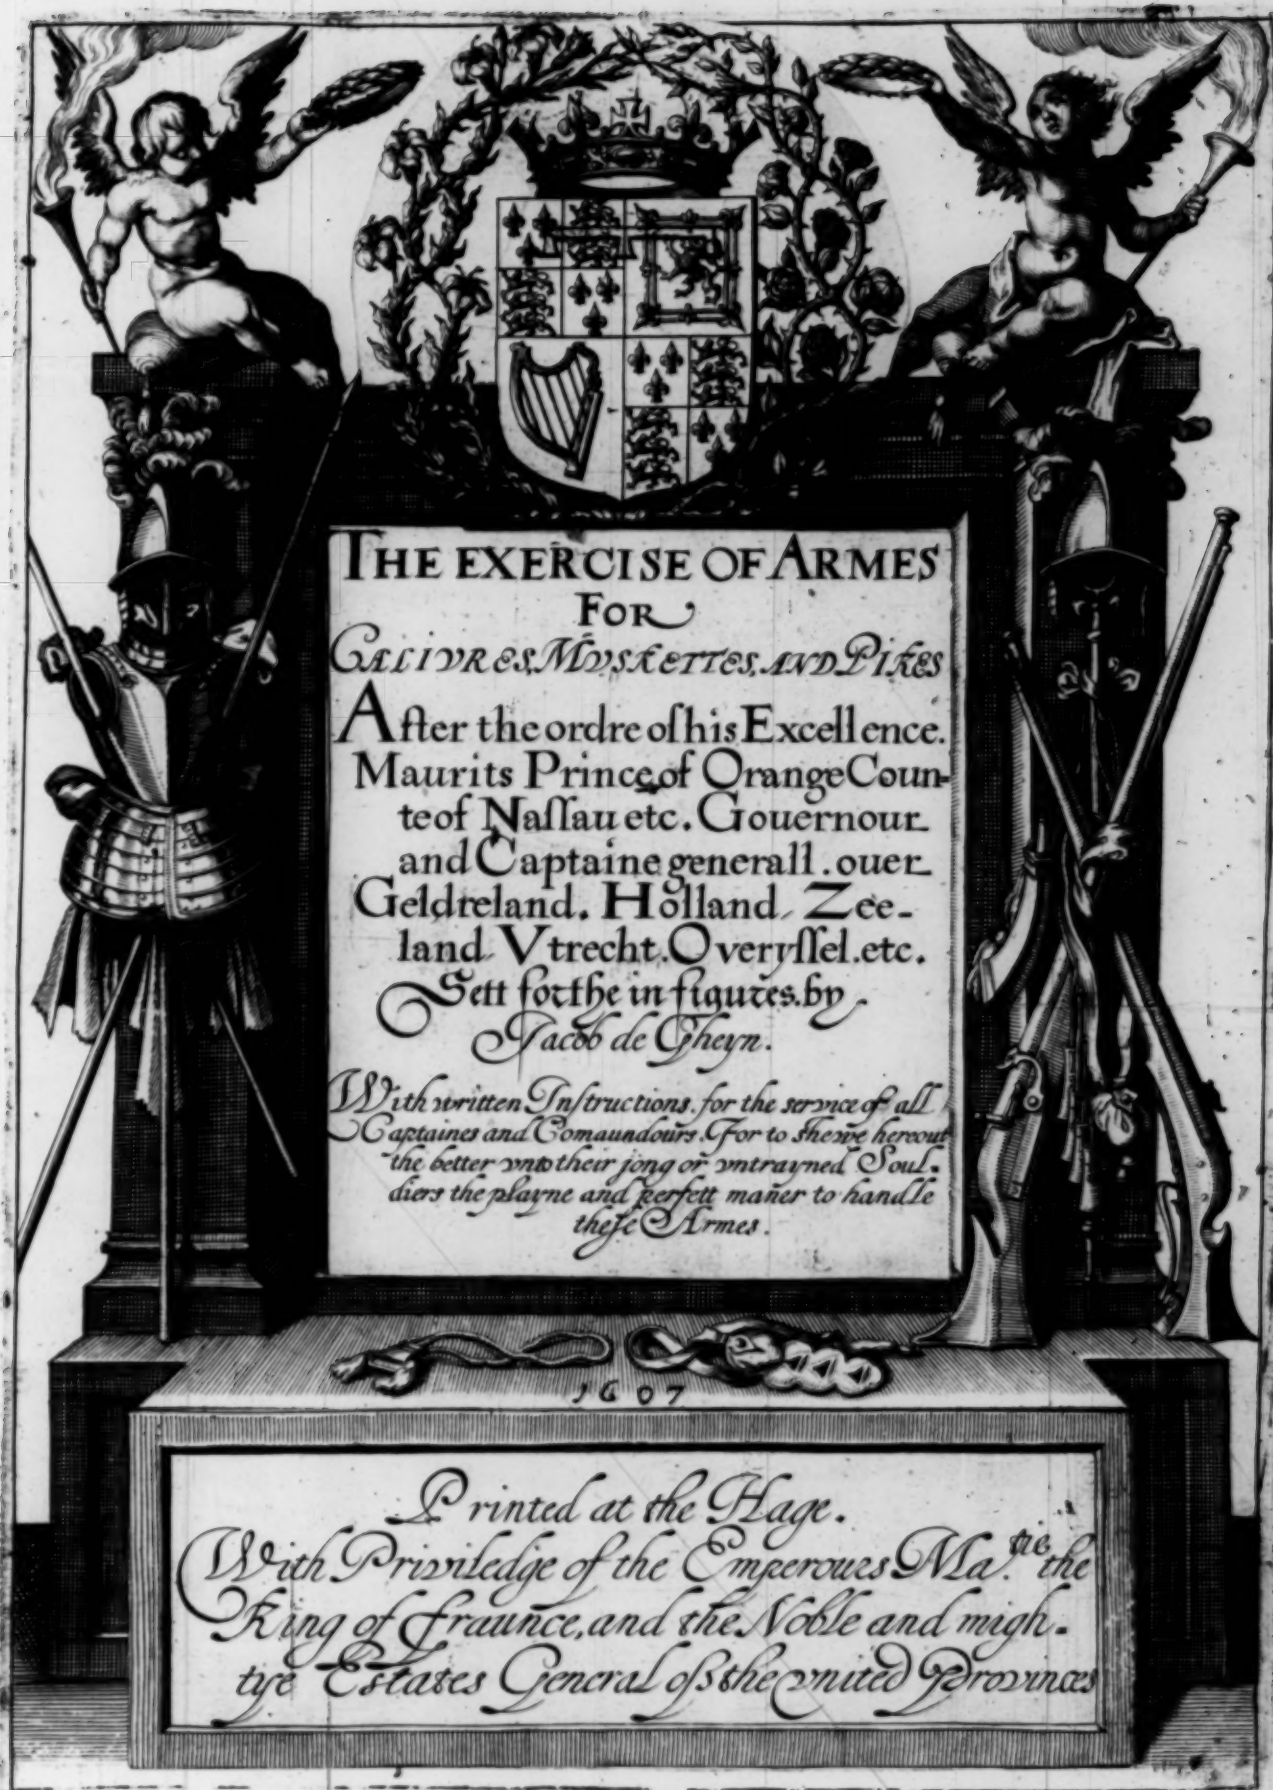 THE EXERCISE OF ARMES
FOR
CALIVRES, MVSKETTES, AND PIKES
After the ordre of his Excellence.
Maurits Prince of Orange Coun-
te of Naſſau etc. Gouernour
and Captaine generall. ouer
Geldreland. Holland, Zee-
land, Vtrecht. Overyſſel. etc.
Sett forthe in figures. by
Jacob de Gheyn.
With written Inſtructions. for the service of all
Captaines and Comaundours. For to shewe hereout
the better vnto their jong or vntrayned Soul-
diers the playne and perfett mañer to handle
theſe Armes.
1607
Printed at the Hage.
With Priviledge of the Emperours Ma.tie the
King of fraunce, and the Noble and migh-
tye Estates General oſs the vnited Provinces